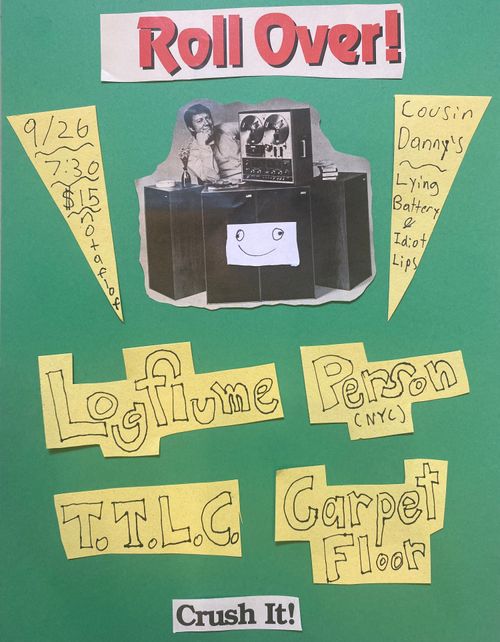 Roll Over!
9/26
7:30
$15
notaflof
Cousin
Danny's
Lying
Battery
&
Idiot
Lips
Logflume
Person
(NYC)
T.T.L.C.
Carpet
Floor
Crush It!